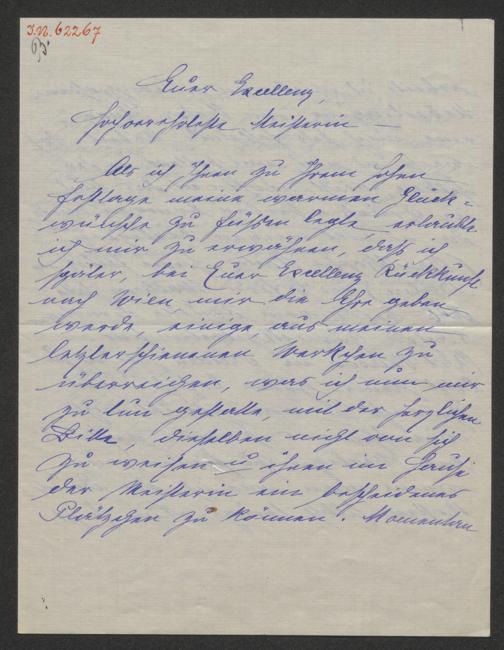 J.N. 62267
Euer Excellenz,
hochverehrteste Meisterin –
Als ich Ihnen zu Ihrem hohen
Festtage meine warmen Glück-
wünsche zu Füßen legte, erlaubte
ich mir zu erwähnen, dass ich
später, bei Euer Excellenz Rückkunft
nach Wien, mir die Ehre geben
werde, einige aus meinen
letzterschienenen Werkchen zu
überreichen, was ich nun mir
zu tun gestatte, mit der herzlichen
Bitte, dieselben nicht von sich
zu weisen u ihnen im Hause
der Meisterin ein bescheidenes
Plätzchen zu können. Momentan